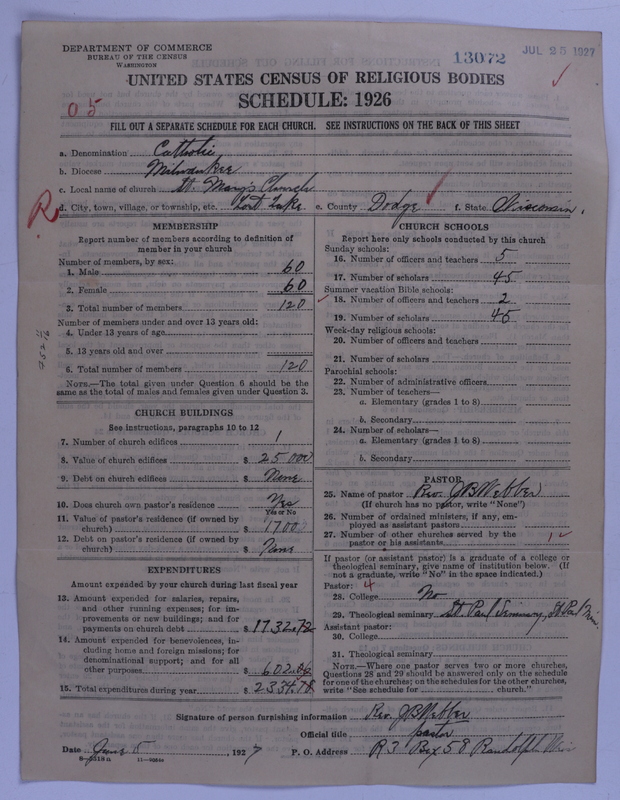 DEPARTMENT OF COMMERCE
BUREAU OF THE CENSUS
WASHINGTON
13072
JUL 25 1927
UNITED STATES CENSUS OF RELIGIOUS BODIES
SCHEDULE: 1926
05
FILL OUT A SEPARATE SCHEDULE FOR EACH CHURCH. SEE INSTRUCTIONS ON THE BACK OF THIS SHEET
a. Denomination Catholic
b. Diocese Milwaukee
c. Local name of church St. Mary's Church
R
d. City, town, village, or township, etc. Lost Lake e. County Dodge f. State Wisconsin.
MEMBERSHIP
Report number of members according to definition of member in your church
Number of members, by sex:
1. Male 60
2. Female 60
3. Total number of members 120
Number of members under and over 13 years old:
4. Under 13 years of age
5. 13 years old and over
6. Total number of members 120
NOTE.—The total given under Question 6 should be the same as the total of males and females given under Question 3.
CHURCH BUILDINGS
See instructions, paragraphs 10 to 12
7. Number of church edifices 1
8. Value of church edifices $ 25000
9. Debt on church edifices $ None
10. Does church own pastor's residence Yes
Yes or No
11. Value of pastor's residence (if owned by church) $ 1700
12. Debt on pastor's residence (if owned by church) $ None
EXPENDITURES
Amount expended by your church during last fiscal year
13. Amount expended for salaries, repairs, and other running expenses; for improvements or new buildings; and for payments on church debt $ 1732.72
14. Amount expended for benevolences, including home and foreign missions; for denominational support; and for all other purposes $ 602.06
15. Total expenditures during year $ 2334.78
CHURCH SCHOOLS
Report here only schools conducted by this church
Sunday schools:
16. Number of officers and teachers 5
17. Number of scholars 45
Summer vacation Bible schools:
18. Number of officers and teachers 2
19. Number of scholars 45
Week-day religious schools:
20. Number of officers and teachers
21. Number of scholars
Parochial schools:
22. Number of administrative officers
23. Number of teachers—
a. Elementary (grades 1 to 8)
b. Secondary
24. Number of scholars—
a. Elementary (grades 1 to 8)
b. Secondary
PASTOR
25. Name of pastor Rev. J B Webber
(If church has no pastor, write "None")
26. Number of ordained ministers, if any, employed as assistant pastors
27. Number of other churches served by the pastor or his assistants 1
If pastor (or assistant pastor) is a graduate of a college or theological seminary, give name of institution below. (If not a graduate, write "No" in the space indicated.)
Pastor: 4
28. College No
29. Theological seminary St Paul Seminary, St Paul Minn
Assistant pastor:
30. College
31. Theological seminary
NOTE.—Where one pastor serves two or more churches, Questions 28 and 29 should be answered only on the schedule for one of the churches; on the schedules for the other churches, write "See schedule for church."
Signature of person furnishing information Rev. J B Webber
Official title pastor
Date June 5, 1927 P. O. Address R 3 Box 58 Randolph Wis
8-5518a 11-9264